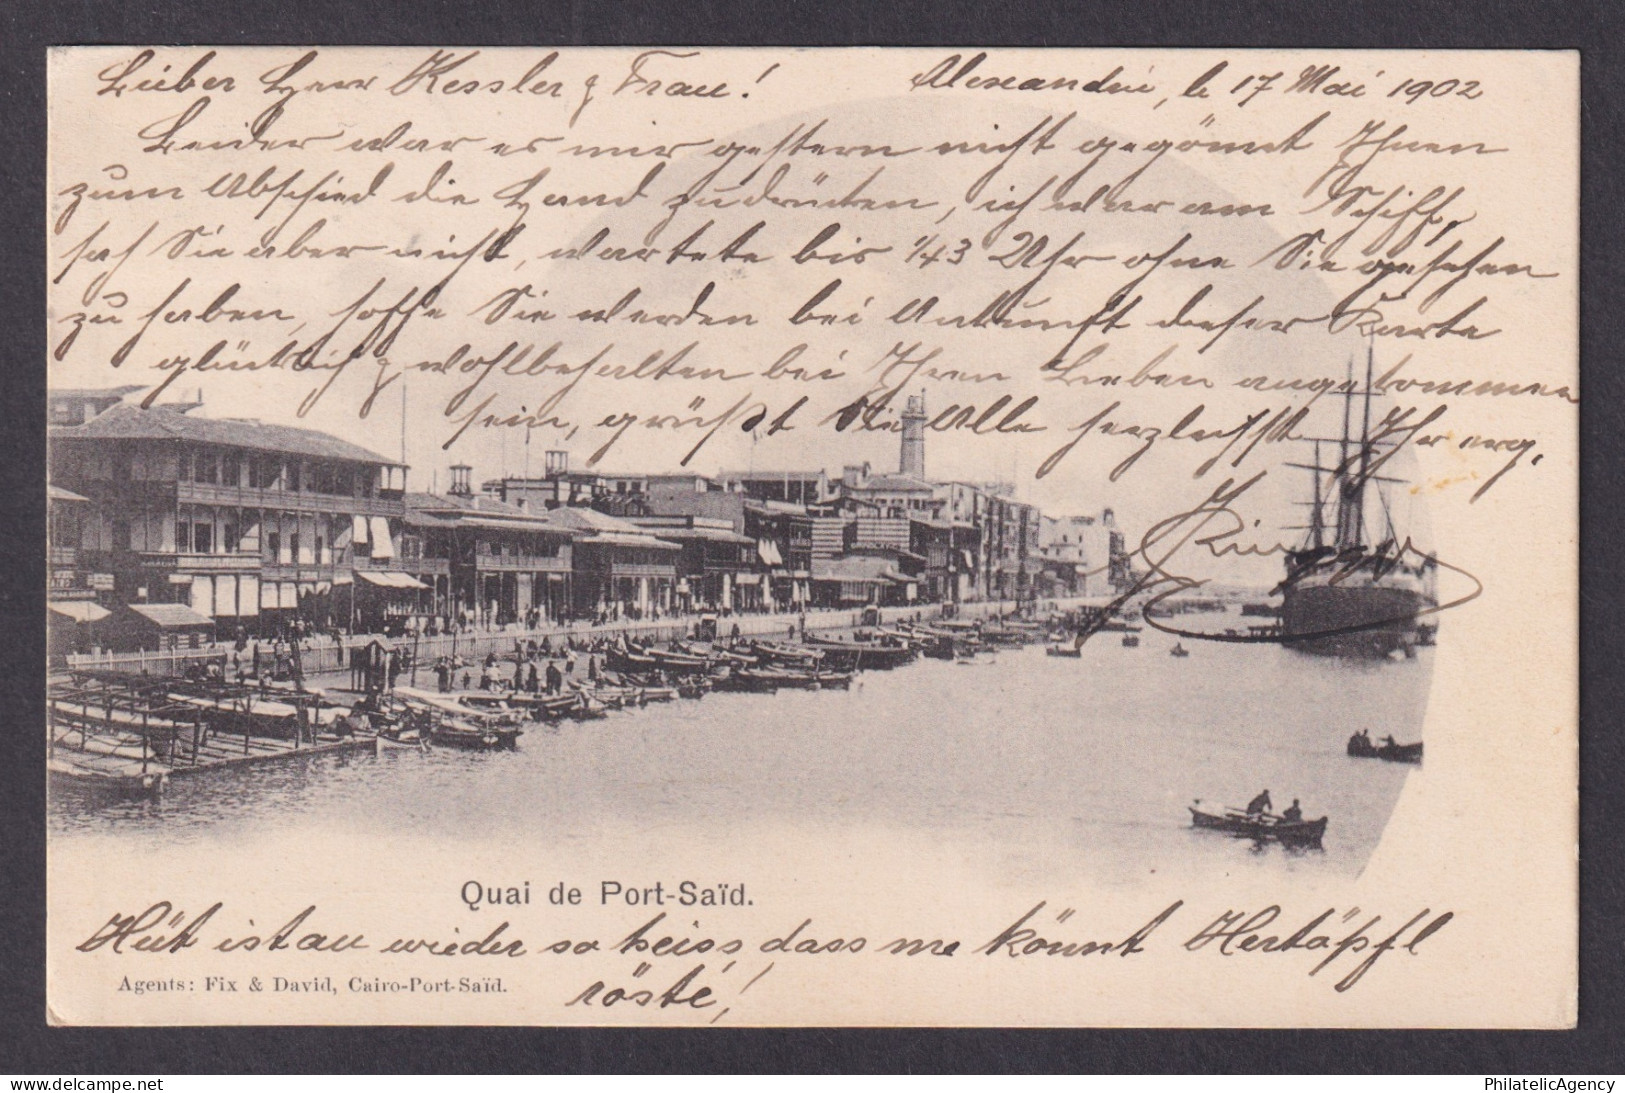 Lieber Herr Kessler & Frau! Alexandrie, le 17 Mai 1902
Leider war es mir gestern nicht gegönnt Ihnen
zum Abschied die Hand zudrücken, ich war am Schiff,
sah Sie aber nicht, wartete bis 1/43 Uhr ohne Sie gesehen
zu haben, hoffe Sie werden bei Ankunft dieser Karte
glücklich & wohlbehalten bei Ihren Lieben angekommen
sein, grüßt Sie Alle herzlichst Ihr erg.
Quai de Port-Saïd.
Hüt ist au wieder so heiss, dass me könnt Hertäpfl
Agents: Fix & David, Cairo-Port-Saïd.
röste!
delcampe.net
PhilatelicAgency